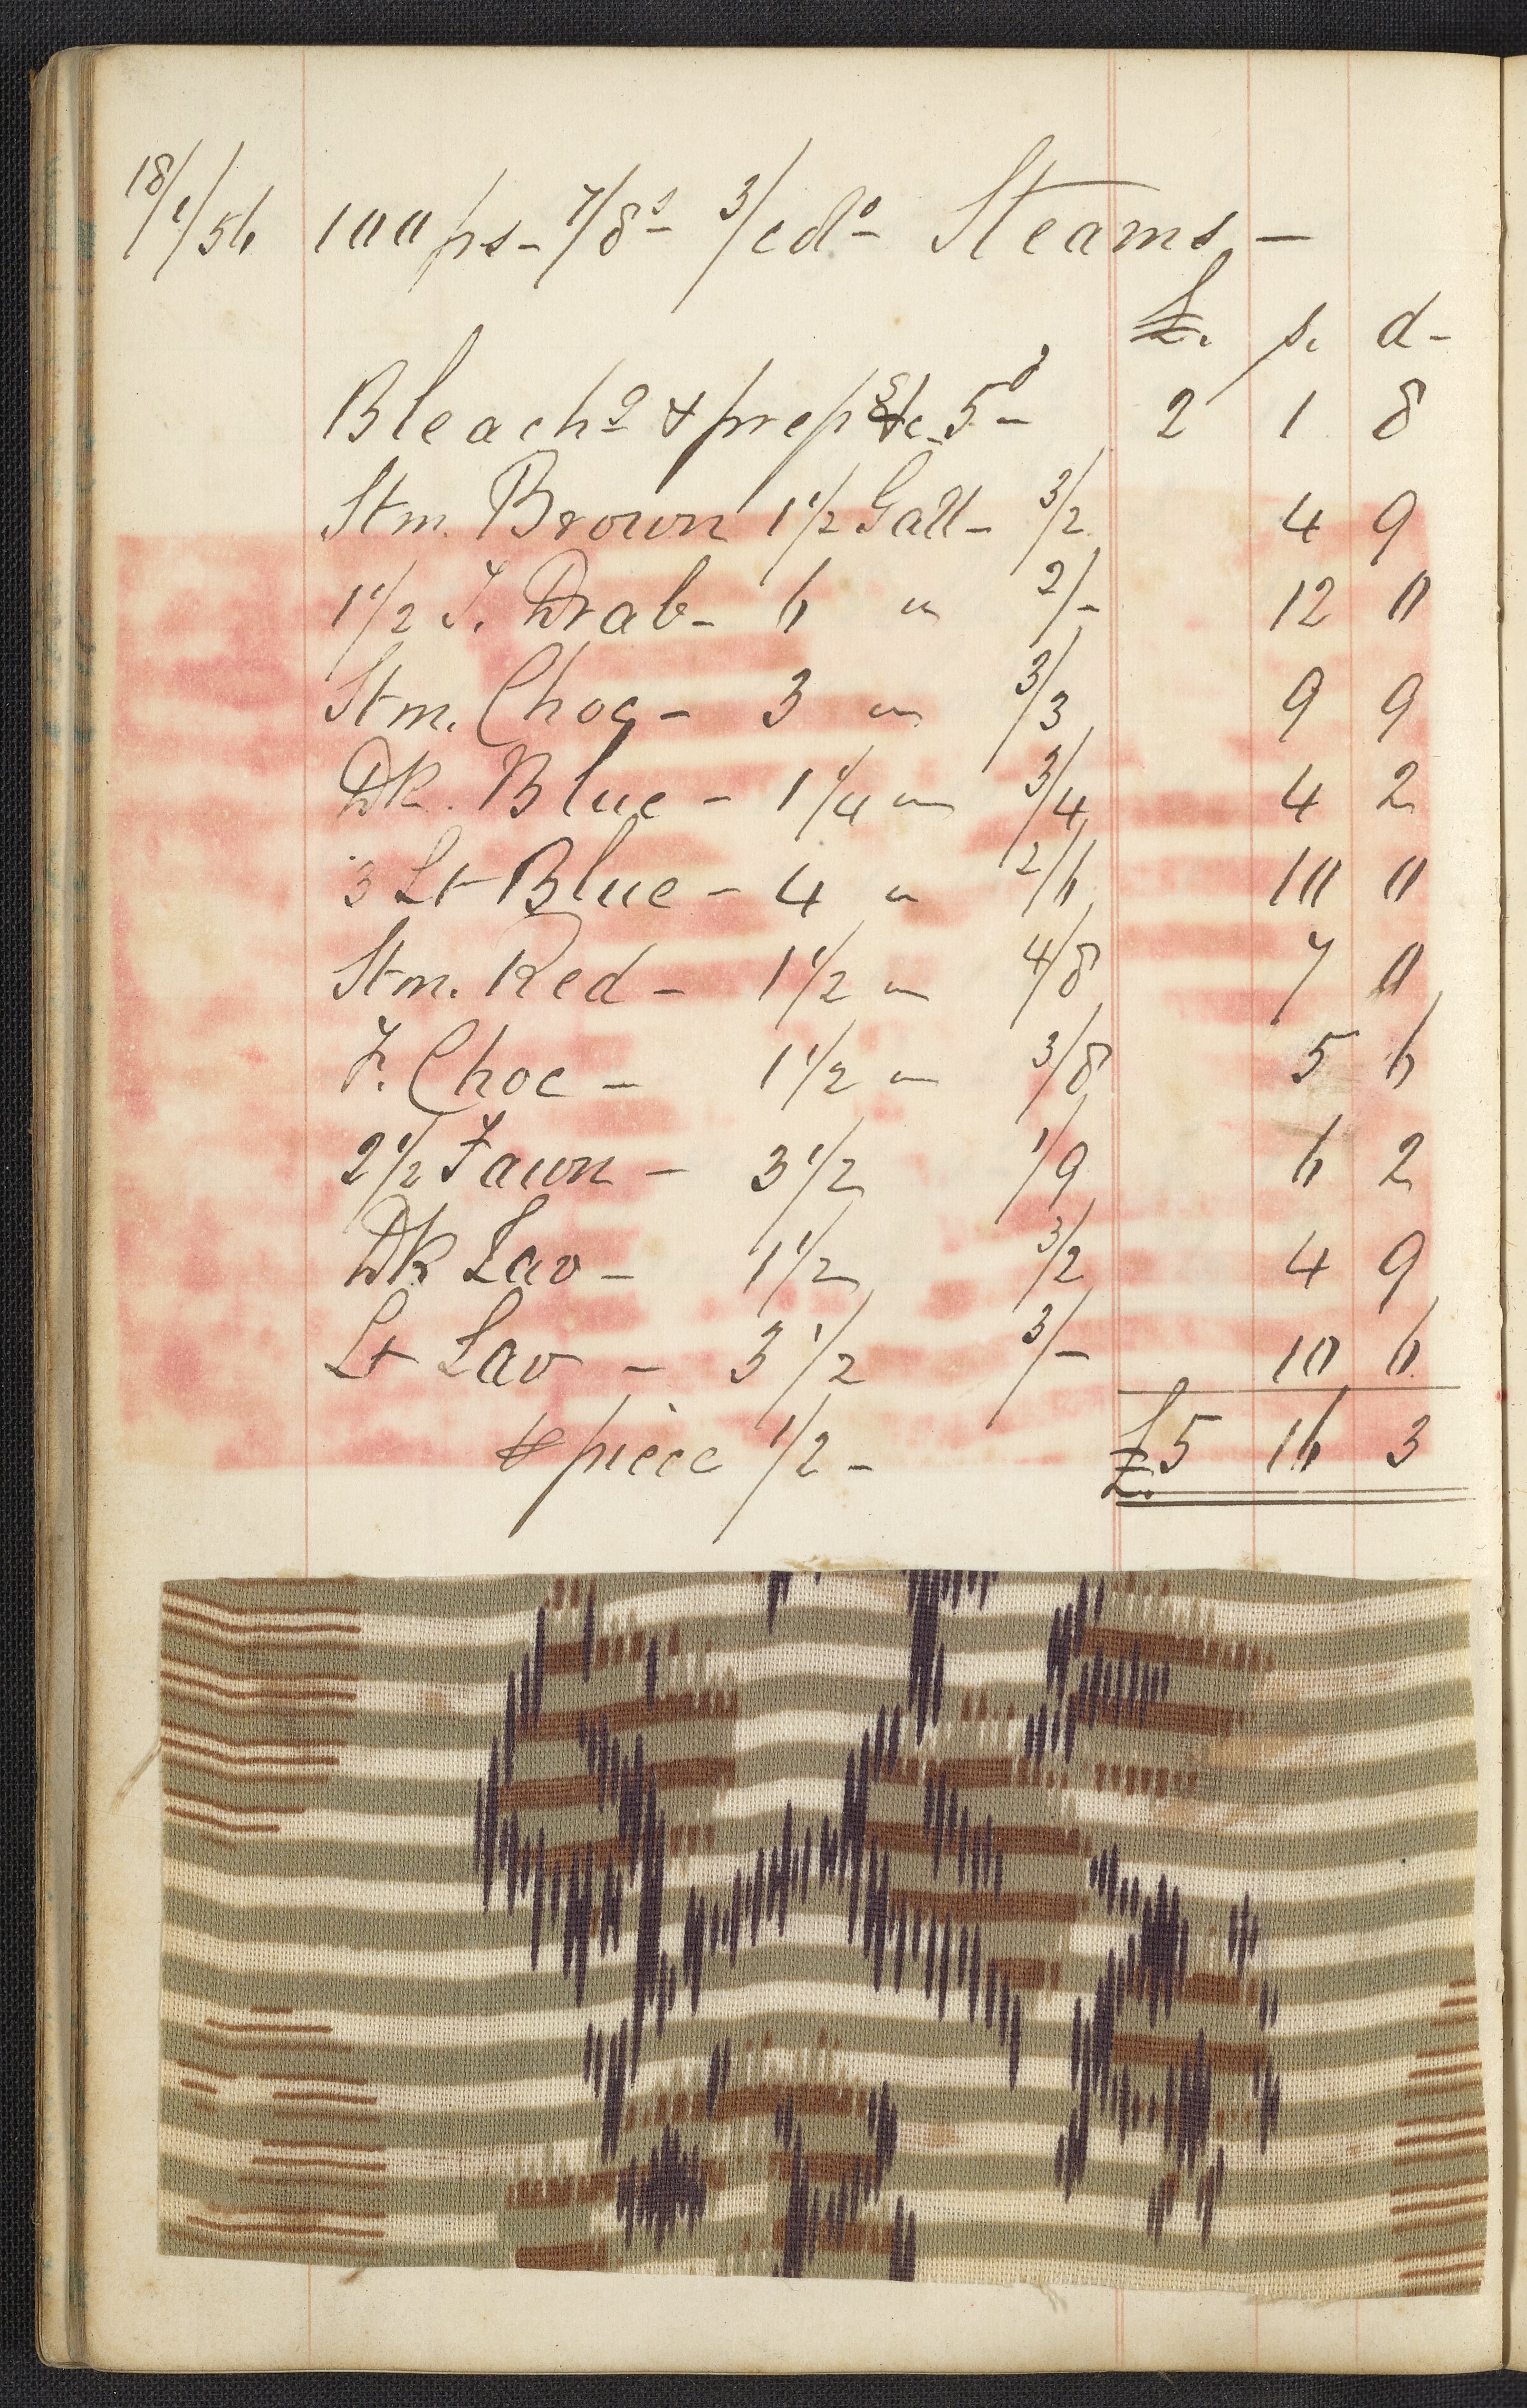 18/1/56 100 ps- 7/8s- 3/cdo- Steams -
£. s. d-
Bleachg & prepg &c. 5d- 2 1 8
Stm. Brown 1 1/2 Gall- 3/2 4 9
1 1/2 F. Drab- 6 " 2/- 12 0
Stm. Choc- 3 " 3/3 9 9
Dk. Blue- 1 1/4 " 3/4 4 2
3 Lt Blue- 4 " 2/6 10 0
Stm. Red- 1 1/2 " 4/8 7 0
F. Choc- 1 1/2 " 3/8 5 6
2 1/2 Fawn- 3 1/2 1/9 6 2
Dk Lav- 1 1/2 3/2 4 9
Lt Lav - 3 1/2 3/- 10 6
piece 1/2 - £5 16 3